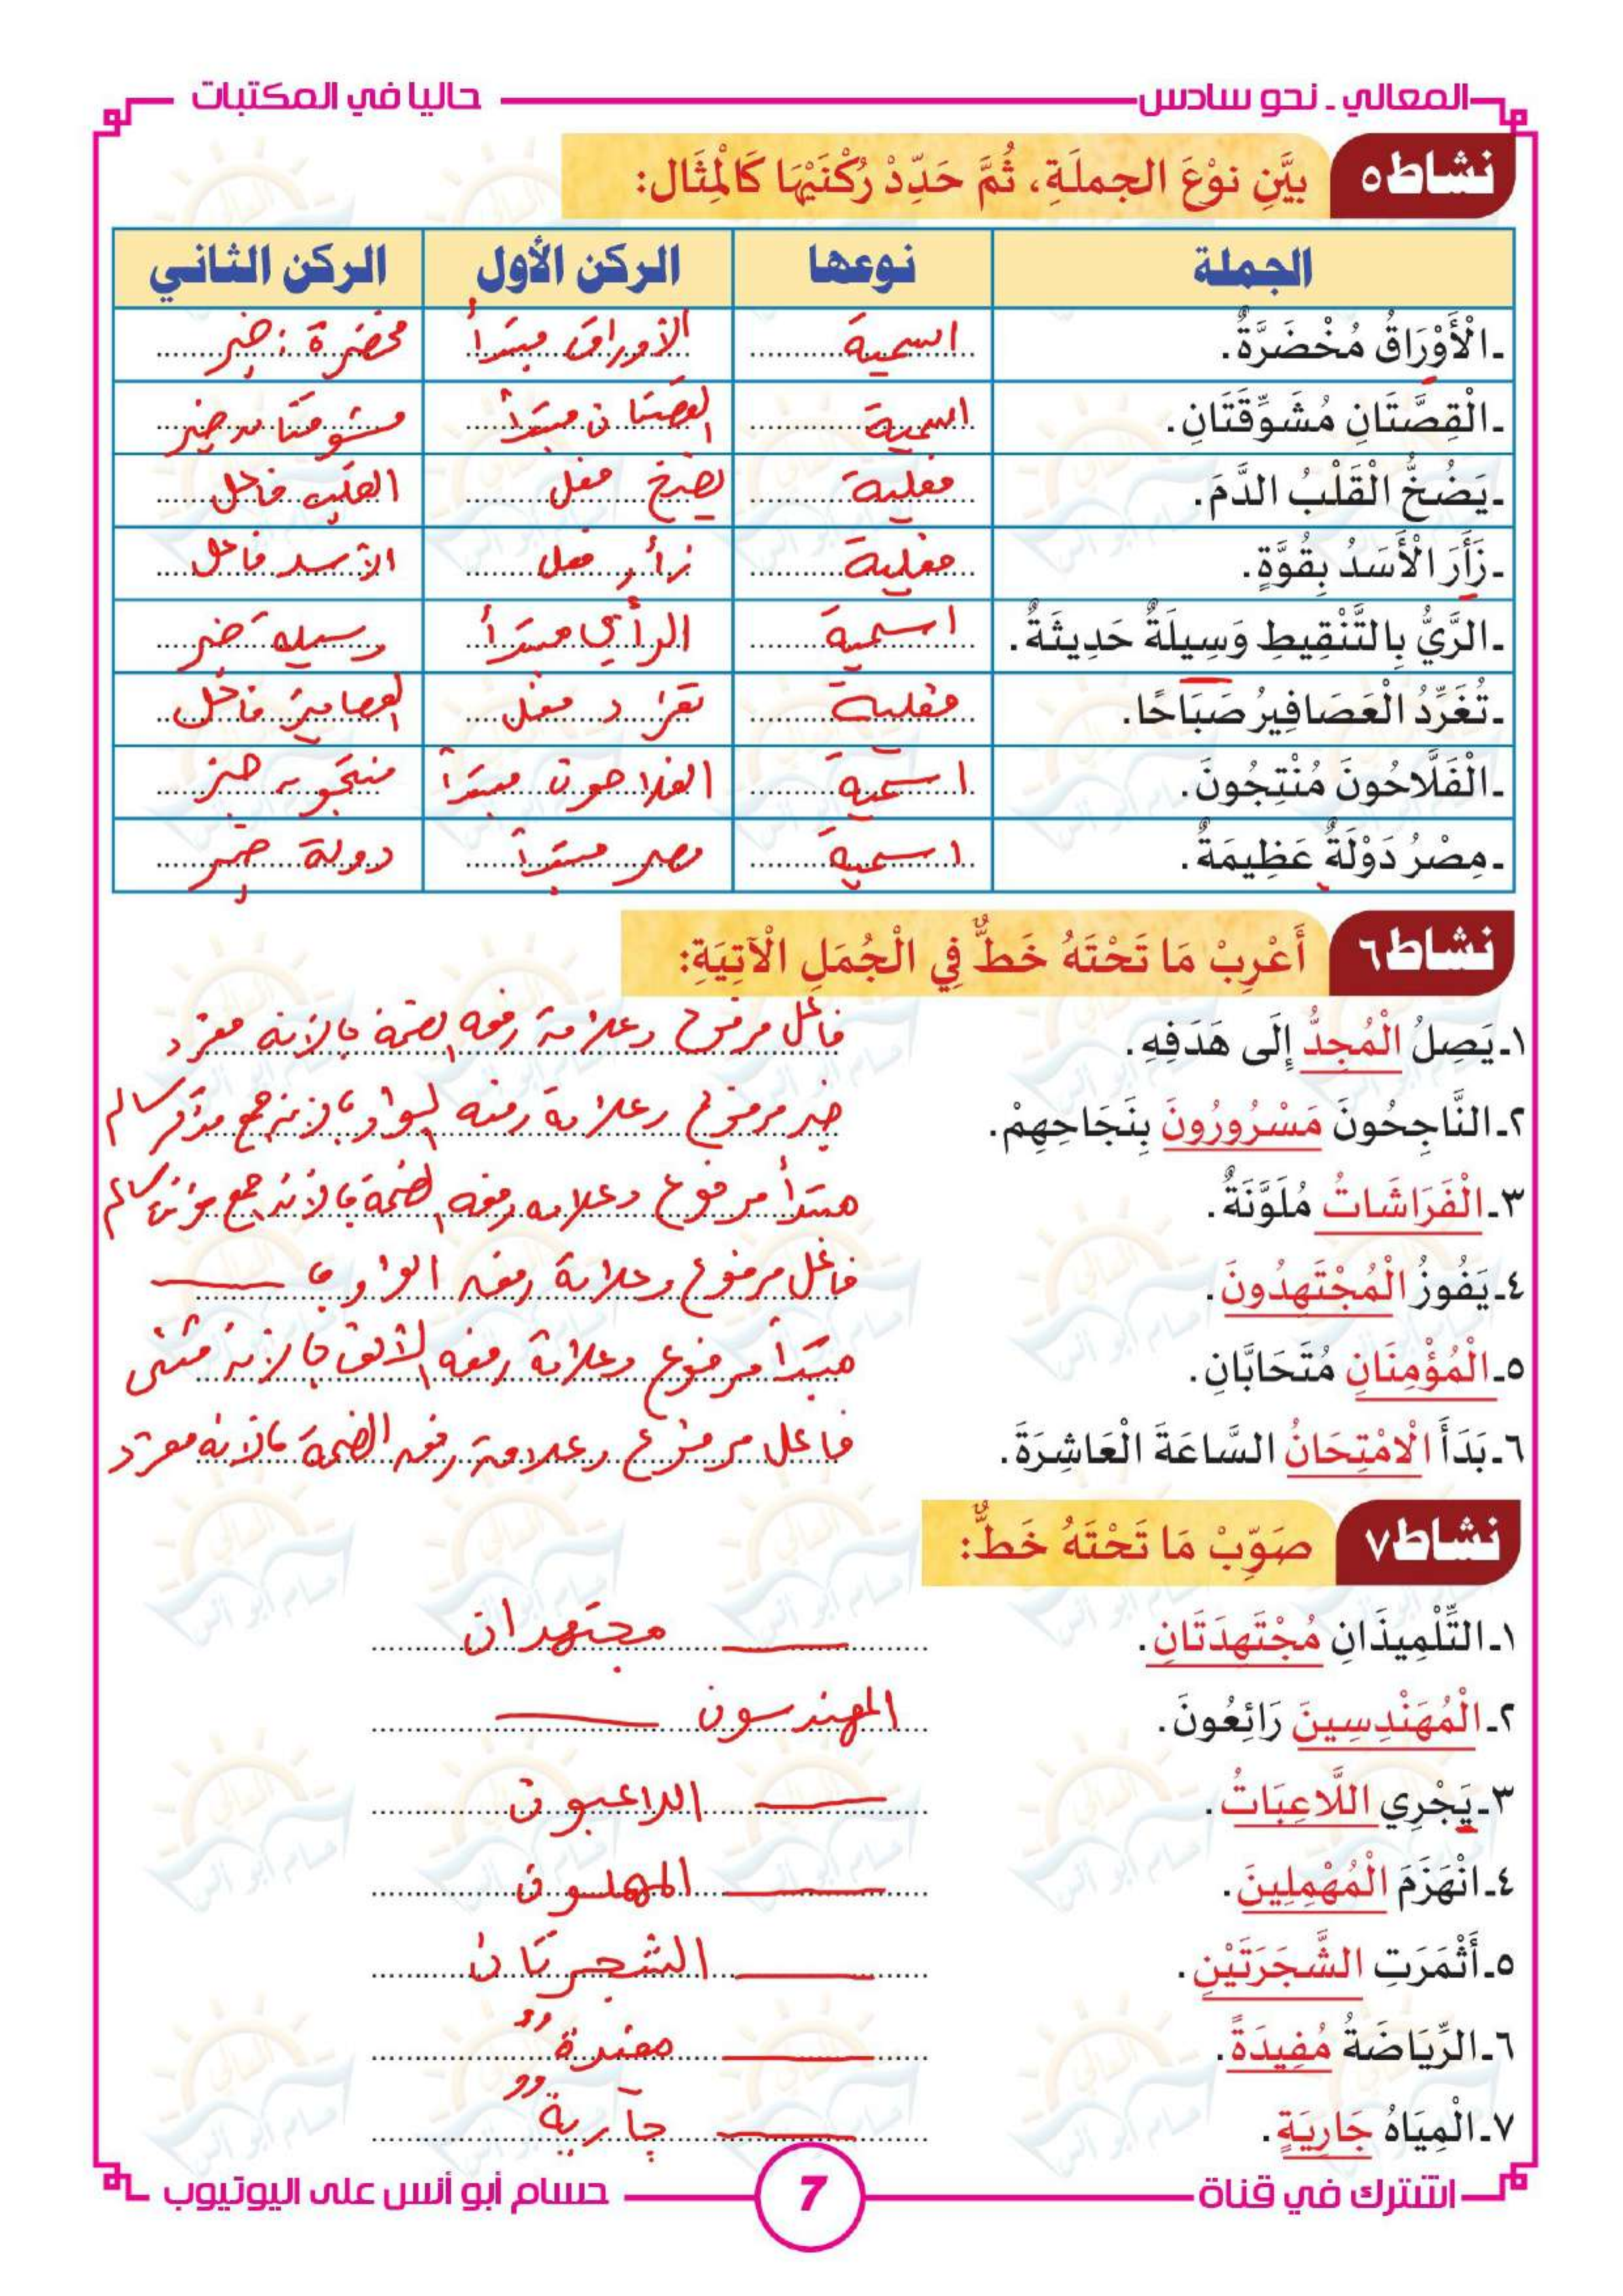 المعالي - نحو سادس حاليا في المكتبات
نشاط ٥ بيَّنِ نوْعَ الجملَةِ، ثُمَّ حَدِّدْ رُكْنَيْهَا كَالْمِثَال:
الجملة نوعها الركن الأول الركن الثاني
ـ الْأَوْرَاقُ مُخْضَرَّةٌ. اسمية الأوراق مبتدأ مخضرة: خبر
ـ الْقِصَّتَانِ مُشَوِّقَتَانِ. اسمية القصتان مبتدأ مشوقتان خبر
ـ يَضُخُّ الْقَلْبُ الدَّمَ. فعلية يضخ فعل القلب فاعل
ـ زَأَرَ الْأَسَدُ بِقُوَّةٍ. فعلية زأر فعل الأسد فاعل
ـ الرَّيُّ بِالتَّنْقِيطِ وَسِيلَةٌ حَدِيثَةٌ. اسمية الرأي مبتدأ وسيلة خبر
ـ تُغَرِّدُ الْعَصَافِيرُ صَبَاحًا. فعلية تغرد فعل العصافير فاعل
ـ الْفَلَّاحُونَ مُنْتِجُونَ. اسمية الفلاحون مبتدأ منتجون خبر
ـ مِصْرُ دَوْلَةٌ عَظِيمَةٌ. اسمية مصر مبتدأ دولة خبر
نشاط ٦ أَعْرِبْ مَا تَحْتَهُ خَطٌّ فِي الْجُمَلِ الْآتِيَةِ:
١ـ يَصِلُ الْمُجِدُّ إِلَى هَدَفِهِ. فاعل مرفوع وعلامة رفعه الضمة لأنه مفرد
٢ـ النَّاجِحُونَ مَسْرُورُونَ بِنَجَاحِهِمْ. خبر مرفوع وعلامة رفعه الواو لأنه جمع مذكر سالم
٣ـ الْفَرَاشَاتُ مُلَوَّنَةٌ. مبتدأ مرفوع وعلامة رفعه الضمة لأنه جمع مؤنث سالم
٤ـ يَفُوزُ الْمُجْتَهِدُونَ. فاعل مرفوع وعلامة رفعه الواو
٥ـ الْمُؤْمِنَانِ مُتَحَابَّانِ. مبتدأ مرفوع وعلامة رفعه الألف لأنه مثنى
٦ـ بَدَأَ الْامْتِحَانُ السَّاعَةَ الْعَاشِرَةَ. فاعل مرفوع وعلامة رفعه الضمة لأنه مفرد
نشاط ٧ صَوِّبْ مَا تَحْتَهُ خَطٌّ:
١ـ التِّلْمِيذَانِ مُجْتَهِدَتَانِ. مجتهدان
٢ـ الْمُهَنْدِسِينَ رَائِعُونَ. المهندسون
٣ـ يَجْرِي اللَّاعِبَاتُ. اللاعبون
٤ـ انْهَزَمَ الْمُهْمِلِينَ. المهملون
٥ـ أَثْمَرَتِ الشَّجَرَتَيْنِ. الشجرتان
٦ـ الرِّيَاضَةُ مُفِيدَةً. مفيدةٌ
٧ـ الْمِيَاهُ جَارِيَةٍ. جاريةٌ
اشترك في قناة 7 حسام أبو أنس على اليوتيوب